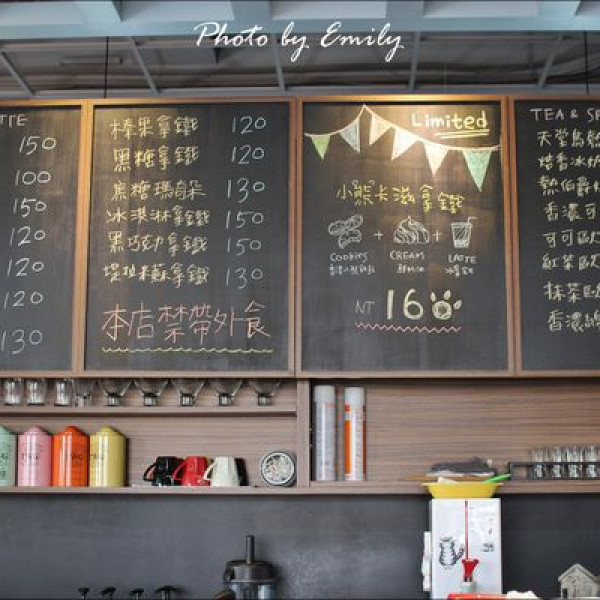 Photo by Emily
TTE
150
100
150
120
120
120
130
榛果拿鐵 120
黑糖拿鐵 120
焦糖瑪奇朵 130
冰淇淋拿鐵 150
黑巧克力拿鐵 150
提拉米蘇拿鐵 130
本店禁帶外食
Limited
小熊卡滋拿鐵
Cookies + CREAM + LATTE
NT 160
TEA & SP
天堂鳥熱
焙香冰奶
熱伯爵
香濃可
可可歐
紅茶歐
抹茶歐
香濃綿